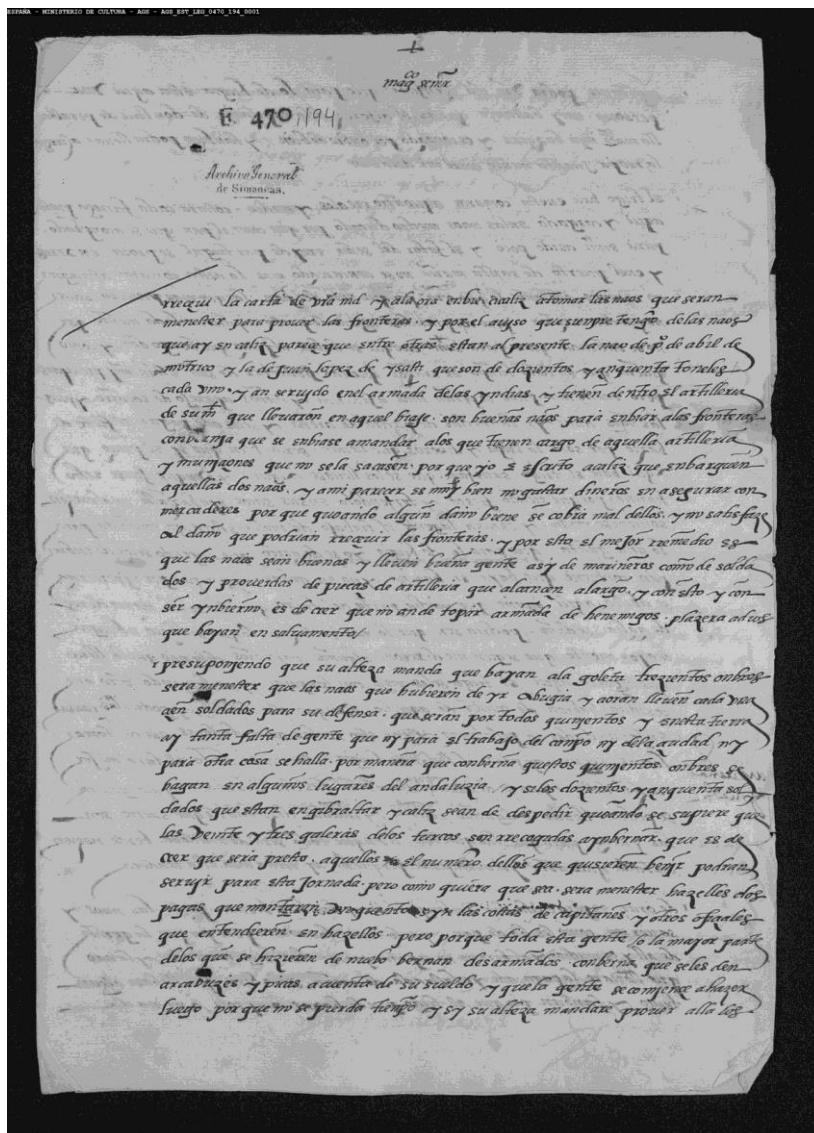 ESPAÑA - MINISTERIO DE CULTURA - AGS - AGS_EST_LEG_0470_194_0001
+
magco señor
E. 470, 194
Archivo General
de Simancas.
rreçeui la carta de vra md y ala ora enbie a caliz a tomar las naos que seran
menester para proueer las fronteras. y por el auiso que sienpre tengo delas naos
que ay en caliz pareçe que entre otras estan al presente la nao de po de abril de
motrico y la de juan lopez de ysasti que son de dozientos y çinquenta toneles
cada vno. y an seruido enel armada delas yndias y tienen dentro el artilleria
de su mt que lleuaron en aquel biaje. son buenas naos para enbiar alas fronteras
convernia que se enbiase a mandar alos que tienen cargo de aquella artilleria
y muniçiones que no se la sacasen. porque yo e escrito a caliz que enbarguen
aquellas dos naos. y a mi pareçer es muy bien no gastar dineros en asegurar con
mercaderes por que quoando algun daño biene se cobra mal dellos. y no satisfaze
al daño que podrian rreçeuir las fronteras. y por esto el mejor rremedio es
que las naos sean buenas y lleuen buena gente asy de marineros como de solda
dos y proueidas de pieças de artilleria que alcançen a largo. y con esto y con
ser ynbierno es de creer que no an de topar armada de henemigos. plazera a dios
que bayan en saluamento/
presuponiendo que su alteza manda que bayan ala goleta trezientos onbres
sera menester que las naos que hubieren de yr a bugia y a oran lleuen cada vna
çien soldados para su defensa. que seran por todos quinientos y en esta tierra
ay tanta falta de gente que ny para el trabajo del campo ny dela çiudad ny
para otra cosa se halla. por manera que conberna questos quinientos onbres se
hagan en algunos lugares del andaluzia y si los dozientos y çinquenta sol
dados que estan en gibraltar y caliz sean de despedir quoando se supiere que
las veinte y tres galeras delos turcos son rrecogidas a ynbernar. que es de
creer que sera presto. aquellos el numero dellos que quisieren benir podran
seruir para esta jornada. pero como quiera que sea. sera menester hazelles dos
pagas que montaran vn quento syn las costas de capitanes y otros ofiçiales
que entendieren en hazellos. pero porque toda esta gente o la mayor parte
delos que se hizieren de nuebo bernan desarmados. conberna que se les den
arcabuzes y picas a cuenta de su sueldo y que la gente se comiençe a hazer
luego porque no se pierda tienpo y sy su alteza mandare proueer alla los